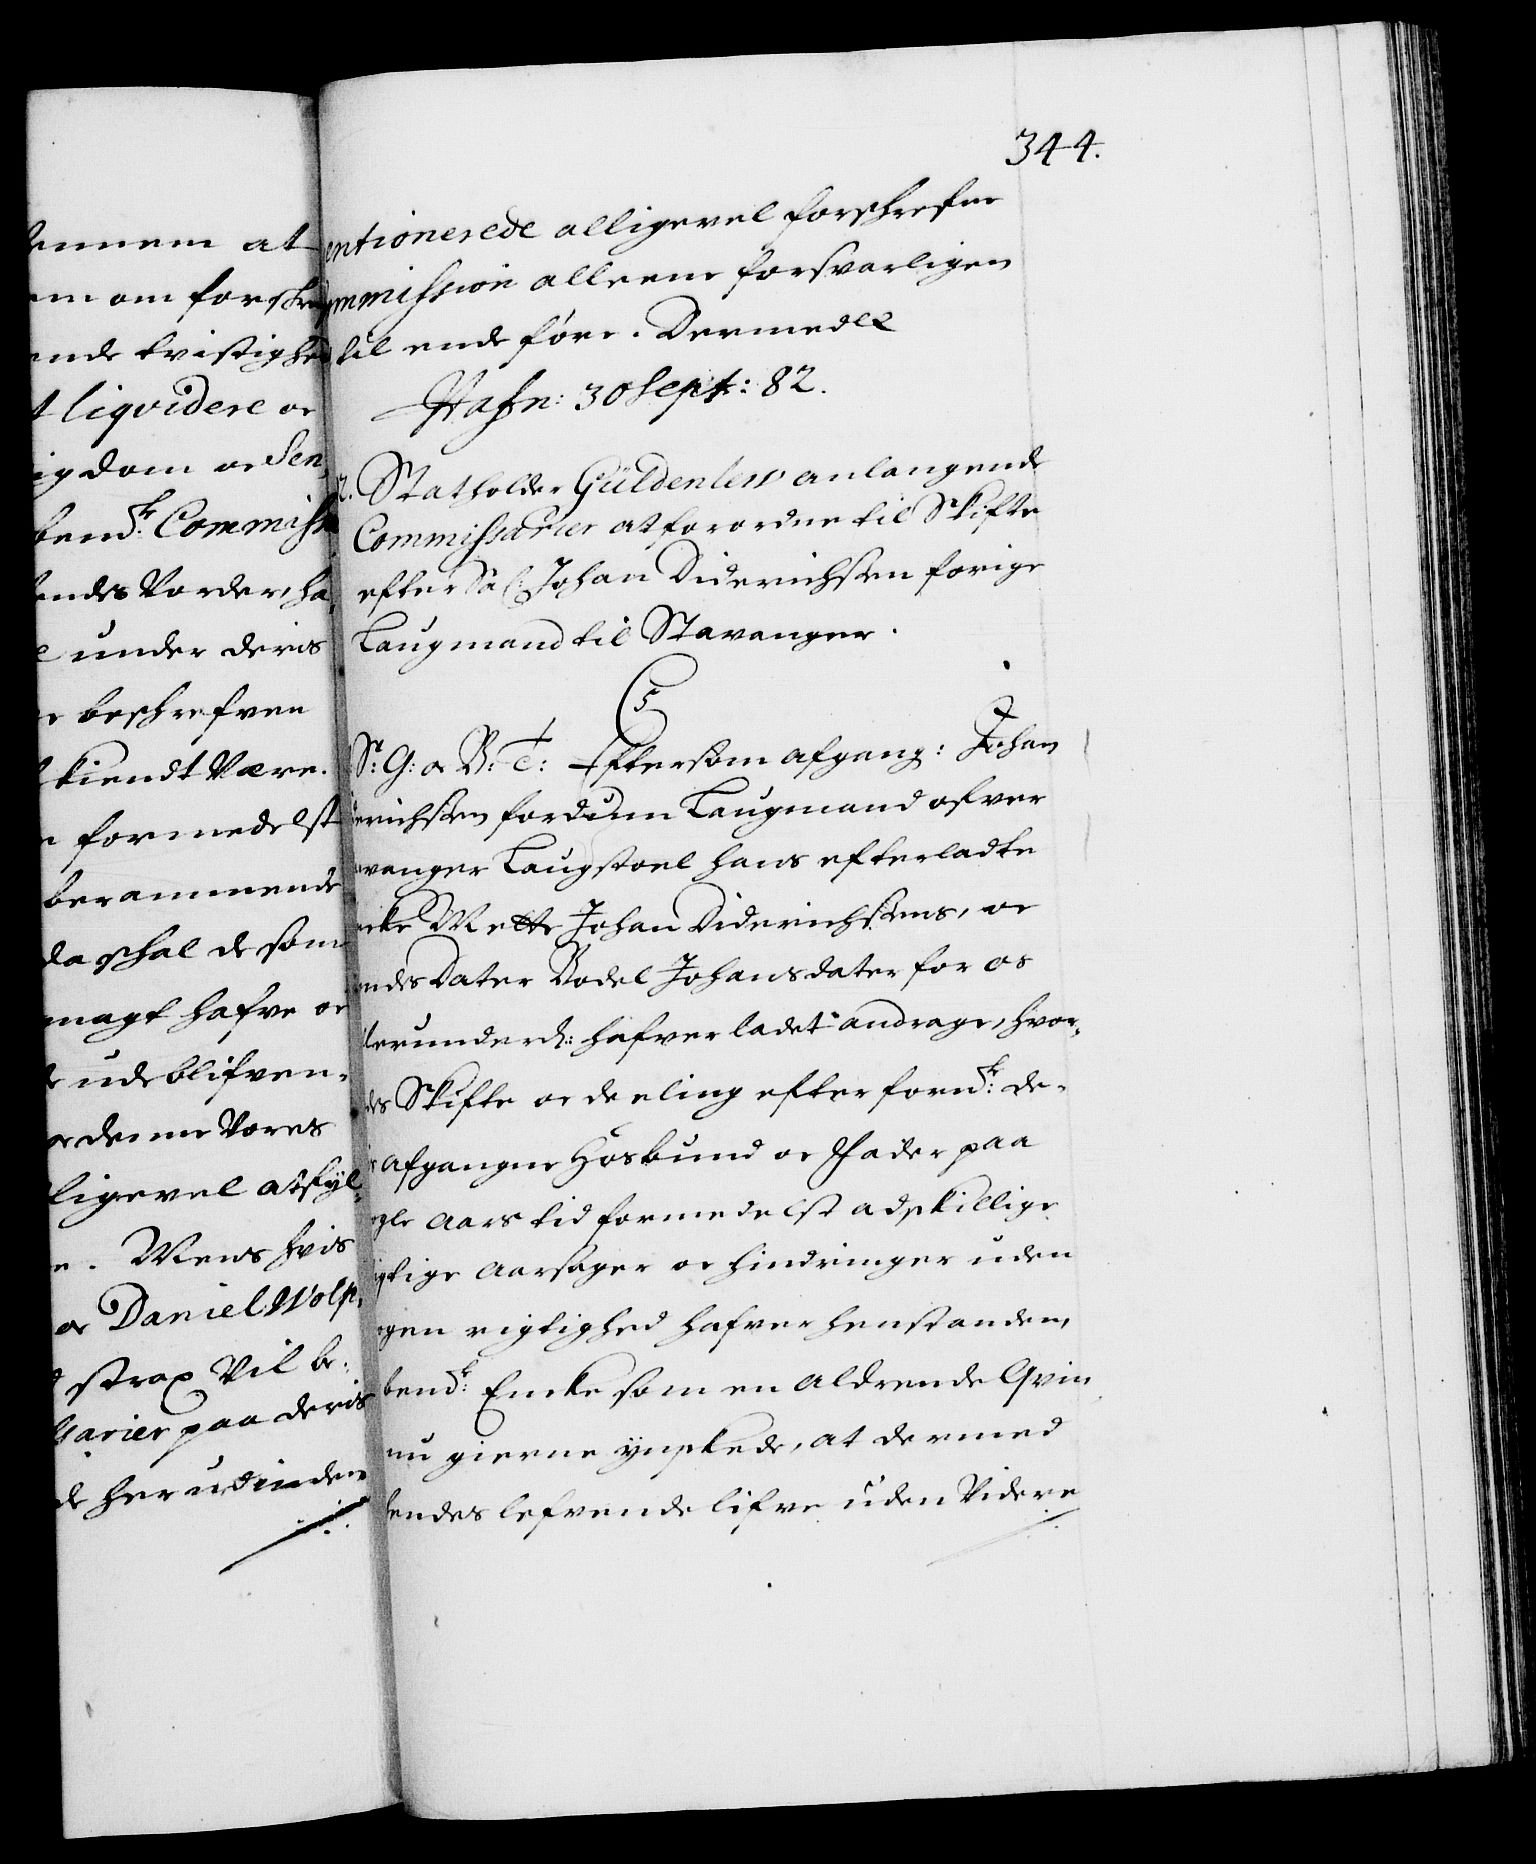 344.
ennem at
em om forskre
ende tvistighed
t liqvidere oc
ig dom oc Sen,
bend.te Commiss
endes Vorder, ha,
e under deris
e beschrefven
t kiendt Være.
e formedelst
berammende
da schal de som
magt hafve oc
e udeblifven,
oc denne Vores
ligevel at fyl,
e. Mens hvis
oc Daniel Wolf,
d strax Vil be,
sarier paa deris
de her udinden
entionerede alligevel forschrefne
mmission alleene forsvarligen
til ende føre. Dermed etc
Hafn: 30 Sept: 82.
2. Statholder Güldenlew anlangende
Commissarier at forordne til Skifte
efter Sal: Johan Diderichsen forige
Laugmand til Stavanger.
C5
S: G: oc B: T: Eftersom afgang: Johan
erichsen fordum Laugmand ofver
vanger Laugstoel hans efterladte
ncke Mette Johan Diderichsens, oc
endes Dater Bodel Johansdater for os
lerunderd: hafver ladet andrage, hvor,
des Skifte oc deeling efter fornd.te de,
s afgangne Hosbund oc Fader paa
ogle Aars tid formedelst adskillige
gtige Aarsager oc hindringer uden
ogen rigtighed hafver henstanden,
bend.te Encke som en aldrende Qvin
nu gierne ynskede, at dermed
hendes lefvende lifve uden Videre